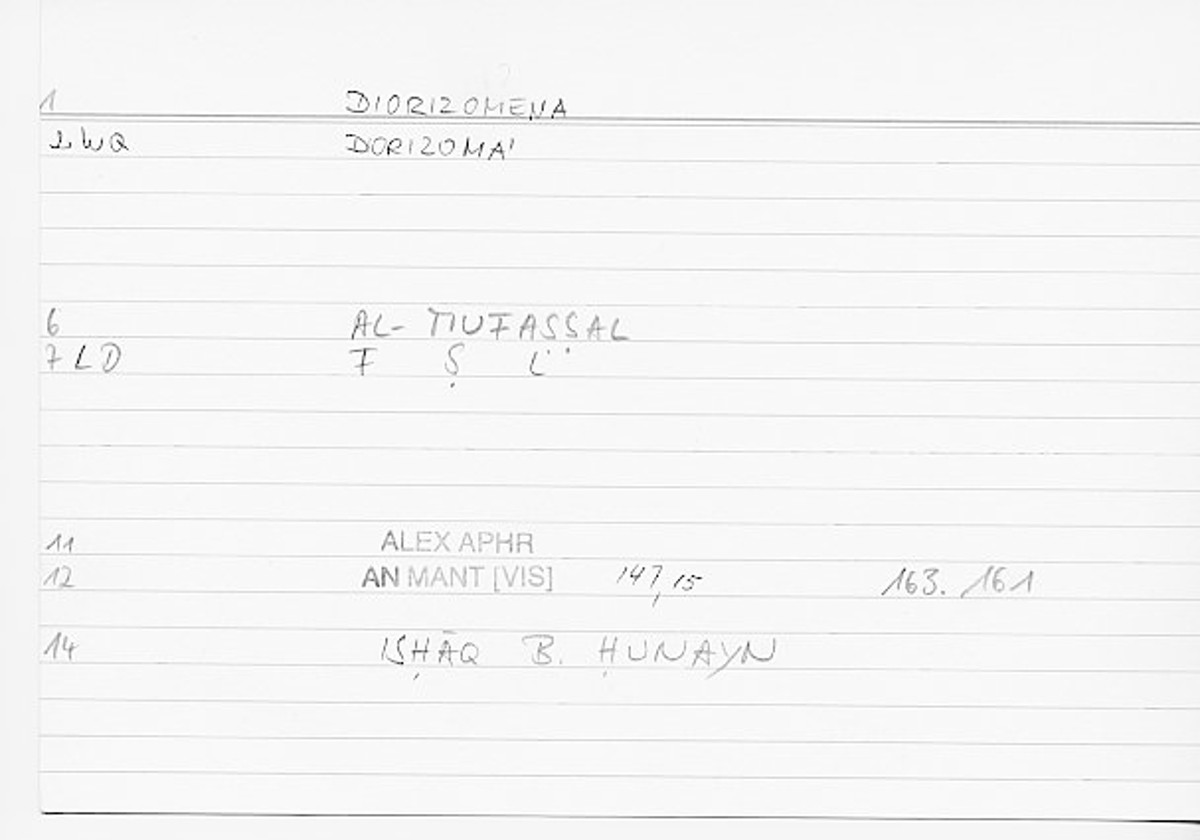 1 DIORIZOMENA
2 WQ DORIZOMA'
6 AL-MUFAṢṢAL
7 LD F Ṣ L
11 ALEX APHR
12 AN MANT [VIS] 147,15 163. 161
14 ISḤĀQ B. ḤUNAYN